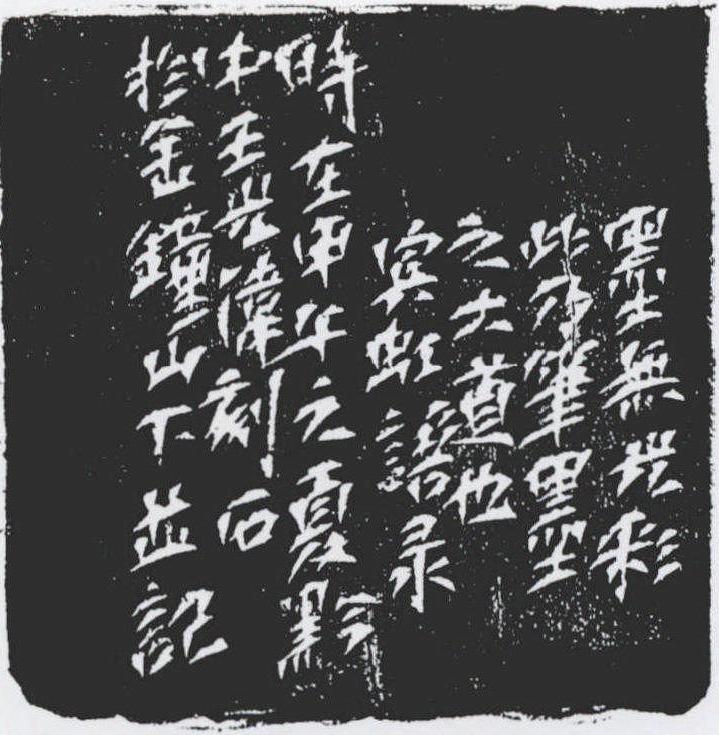 墨無光彩
此乃筆墨
之大道也
宾虹語录
時在甲午之夏黔
中王光偉刻石
於金鐘山下並記